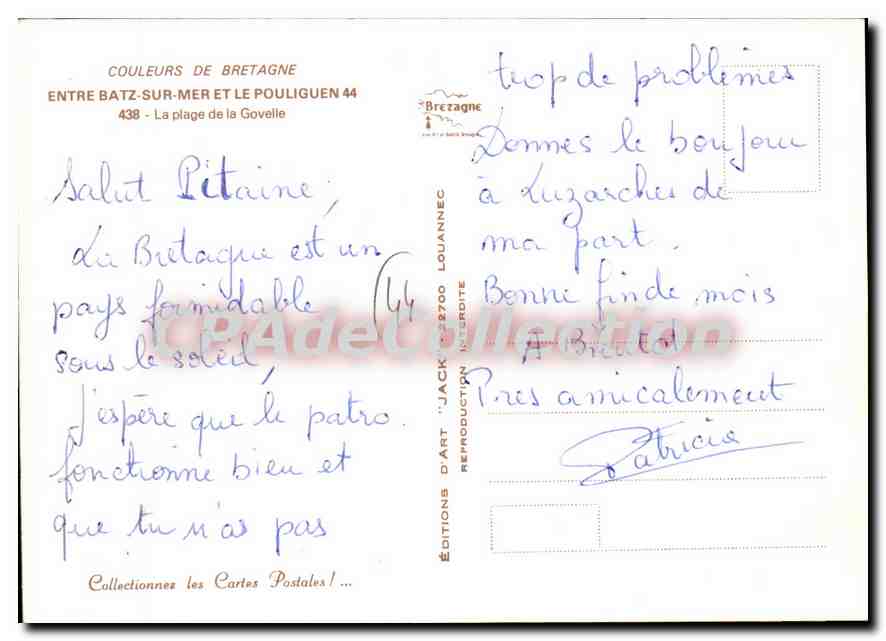 COULEURS DE BRETAGNE
ENTRE BATZ-SUR-MER ET LE POULIGUEN 44
438 - La plage de la Govelle
Salut Pitaine,
La Bretagne est un
pays formidable
sous le soleil,
J'espère que le patro
fonctionne bien et
que tu n'as pas
Collectionnez les Cartes Postales ! ...
(44
Bretagne
ÉDITIONS D'ART "JACK" - 22700 LOUANNEC
REPRODUCTION INTERDITE
trop de problèmes
Donnes le boujour
à Luzarches de
ma part.
Bonne fin de mois
A Bientot
Tres amicalement
Patricia
CPAdeCollection